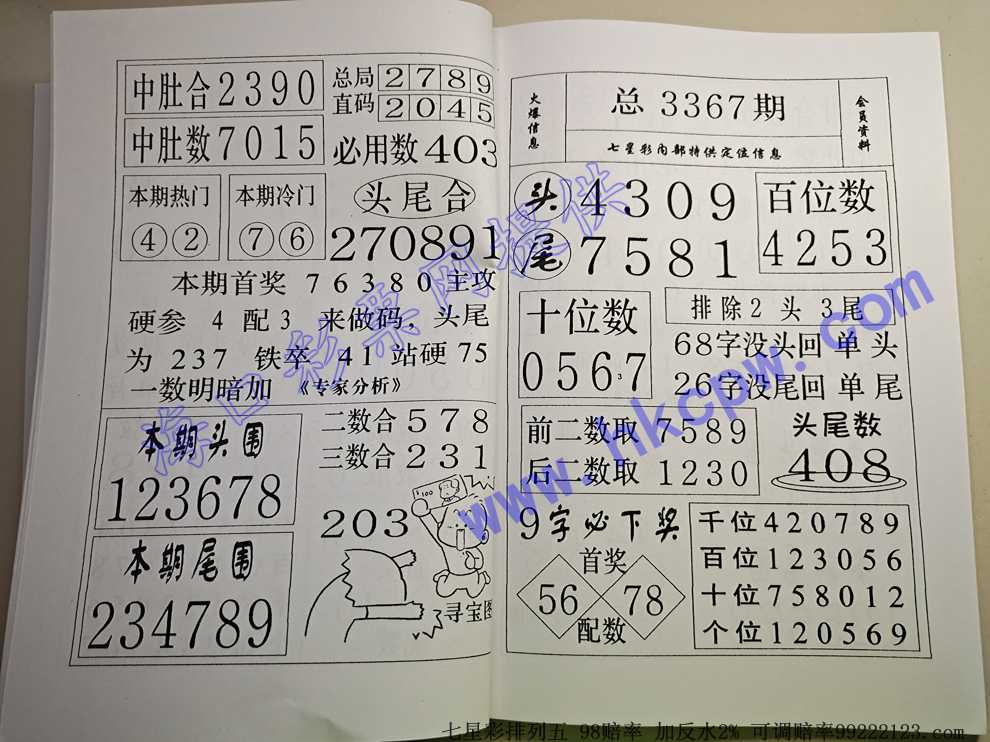 中肚合2390
中肚数7015
总局2789
直码2045
必用数403
本期热门
④②
本期冷门
⑦⑥
头尾合
270891
本期首奖 76380主攻
硬参 4 配3 来做码，头尾
为 237 铁卒 41站硬75
一数明暗加 《专家分析》
本期头围
123678
本期尾围
234789
二数合578
三数合231
203
100
寻宝图
火爆信息
总 3367期
七星彩内部特供定位信息
会员资料
头4309
尾7581
百位数
4253
十位数
0567
3
排除2头3尾
68字没头回单头
26字没尾回单尾
前二数取 7589
后二数取 1230
头尾数
408
9字必下奖
首奖
56 78
配数
千位420789
百位123056
十位758012
个位120569
海口彩票网提供
www.hkcpw.com
七星彩排列五 98赔率 加反水2% 可调赔率99222123.com